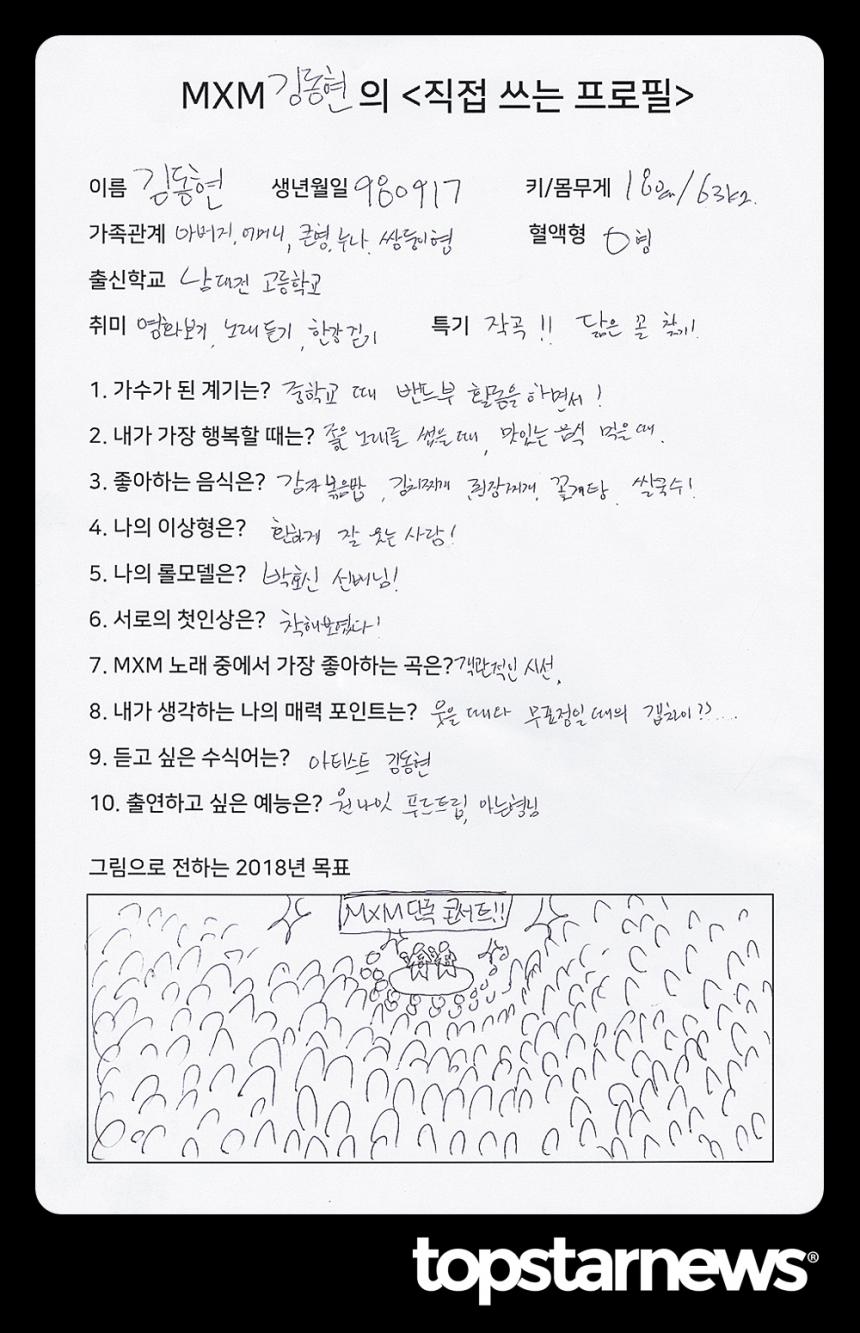 MXM 김동현 의 <직접 쓰는 프로필>
이름 김동현 생년월일 980917 키/몸무게 180cm/63kg.
가족관계 아버지, 어머니, 큰형, 누나, 쌍둥이형 혈액형 O형
출신학교 남대전 고등학교
취미 영화보기, 노래듣기, 한강걷기 특기 작곡!! 닮은 꼴 찾기!
1. 가수가 된 계기는? 중학교 때 밴드부 활동을 하면서!
2. 내가 가장 행복할 때는? 좋은 노래를 썼을 때, 맛있는 음식 먹을 때.
3. 좋아하는 음식은? 감자볶음밥, 김치찌개, 된장찌개, 꽃게탕, 쌀국수!
4. 나의 이상형은? 환하게 잘 웃는 사람!
5. 나의 롤모델은? 박효신 선배님!
6. 서로의 첫인상은? 착해보였다!
7. MXM 노래 중에서 가장 좋아하는 곡은? 객관적인 시선.
8. 내가 생각하는 나의 매력 포인트는? 웃을 때와 무표정일 때의 갭차이??....
9. 듣고 싶은 수식어는? 아티스트 김동현
10. 출연하고 싶은 예능은? 원나잇 푸드트립, 아는형님
그림으로 전하는 2018년 목표
MXM 단독 콘서트!!
topstarnews®